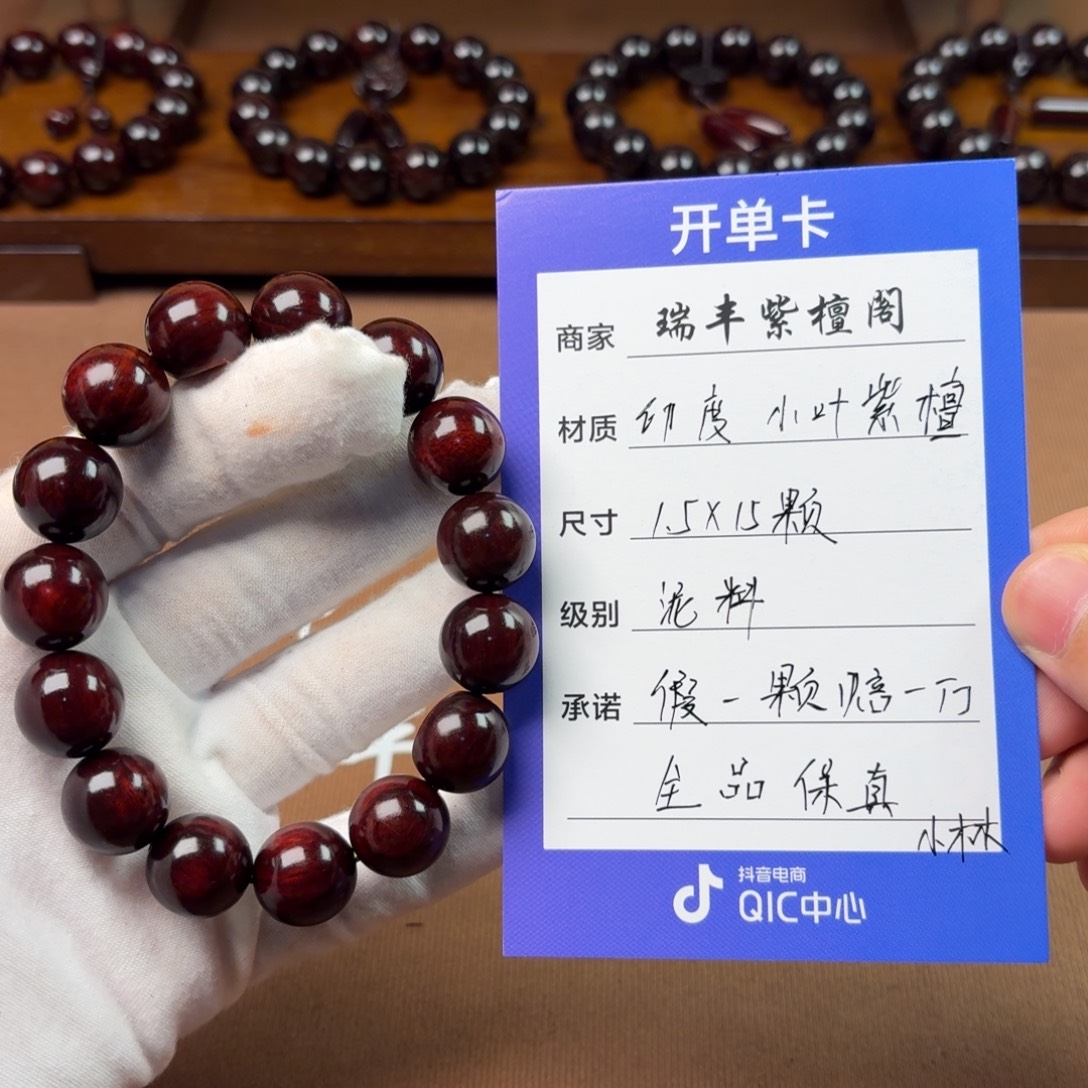 开单卡
商家 瑞丰紫檀阁
材质 印度 小叶紫檀
尺寸 1.5X15颗
级别 泥料
承诺 假一颗赔一万
全品保真
小林
抖音电商
QIC中心